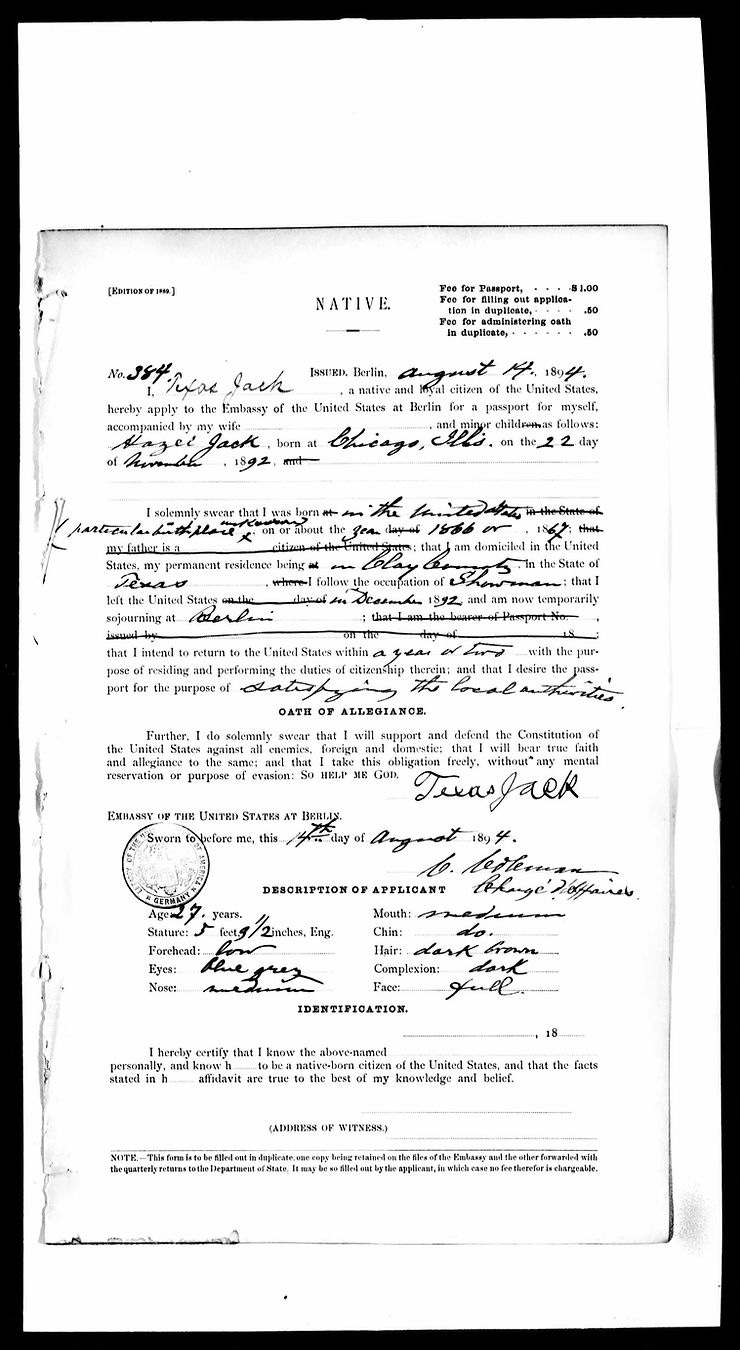 [EDITION OF 1889.]
NATIVE.
Fee for Passport, - - - $1.00
Fee for filling out applica-
tion in duplicate, - - - - .50
Fee for administering oath
in duplicate, - - - - - - .50
No. 384 ISSUED, Berlin, August 14., 1894.
I, Texas Jack, a native and loyal citizen of the United States,
hereby apply to the Embassy of the United States at Berlin for a passport for myself,
accompanied by my wife , and minor children as follows:
Hazel Jack, born at Chicago, Ills. on the 22 day
of November, 1892, and
I solemnly swear that I was born at in the United States in the State of
particular birthplace unknown, on or about the year day of 1866 or , 1867; that
my father is a citizen of the United States; that I am domiciled in the United
States, my permanent residence being at in Clay County, in the State of
Texas, where I follow the occupation of Showman; that I
left the United States on the day of in December 1892 and am now temporarily
sojourning at Berlin ; that I am the bearer of Passport No. ,
issued by on the day of 18 ;
that I intend to return to the United States within a year or two with the pur-
pose of residing and performing the duties of citizenship therein; and that I desire the pass-
port for the purpose of satisfying the local authorities.
OATH OF ALLEGIANCE.
Further, I do solemnly swear that I will support and defend the Constitution of
the United States against all enemies, foreign and domestic; that I will bear true faith
and allegiance to the same; and that I take this obligation freely, without any mental
reservation or purpose of evasion: SO HELP ME GOD.
Texas Jack
EMBASSY OF THE UNITED STATES AT BERLIN.
Sworn to before me, this 14th day of August 1894.
C. Coleman
Chargé d'Affaires.
OF AMERICA
GERMANY
DESCRIPTION OF APPLICANT
Age: 27. years. Mouth: medium
Stature: 5 feet 9 1/2 inches, Eng. Chin: do.
Forehead: low Hair: dark brown
Eyes: blue grey Complexion: dark
Nose: medium Face: full
IDENTIFICATION.
, 18
I hereby certify that I know the above-named
personally, and know h to be a native-born citizen of the United States, and that the facts
stated in h affidavit are true to the best of my knowledge and belief.
(ADDRESS OF WITNESS.)
NOTE.—This form is to be filled out in duplicate, one copy being retained on the files of the Embassy and the other forwarded with
the quarterly returns to the Department of State. It may be so filled out by the applicant, in which case no fee therefor is chargeable.